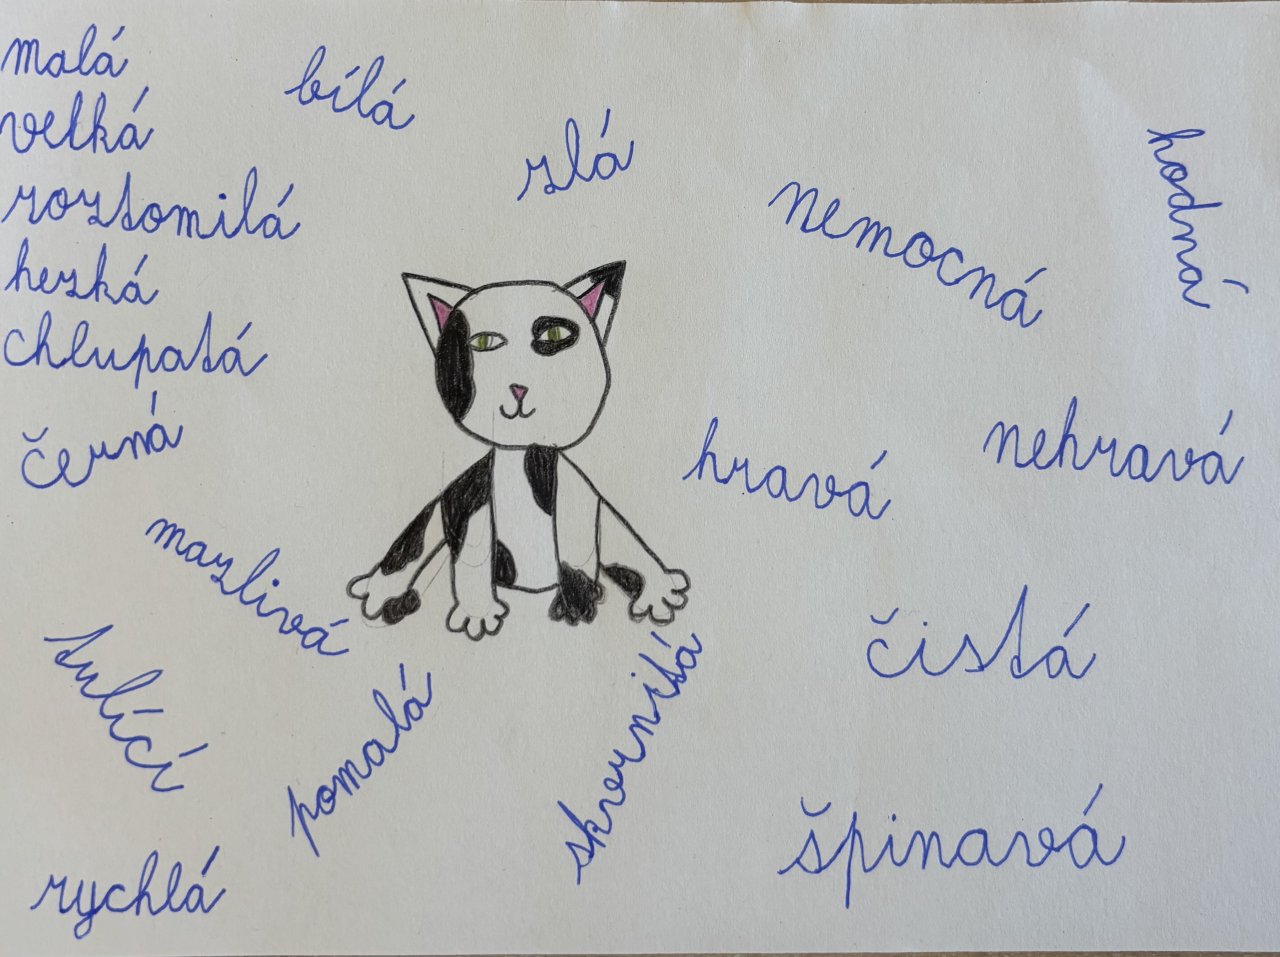 malá
velká
roztomilá
hezká
chlupatá
černá
bílá
zlá
nemocná
hodná
hravá
nehravá
mazlivá
tulící
pomalá
rychlá
skvrnitá
čistá
špinavá